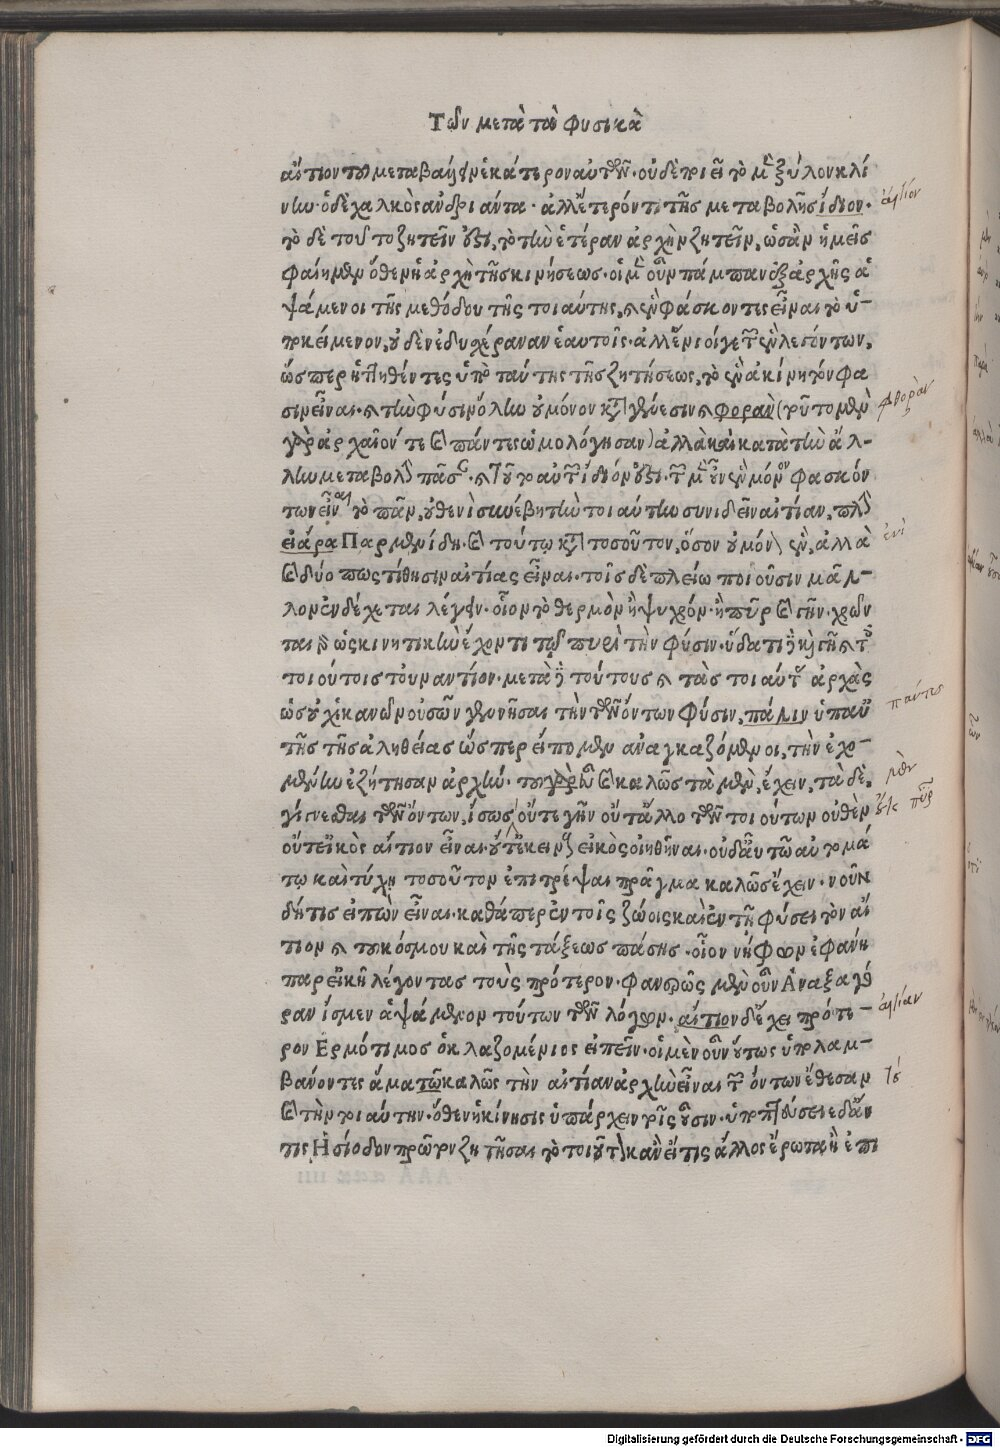 Τῶν μετὰ τὰ Φυσικὰ
αἴτιον τοῦ μεταβάλλειν ἑκάτερον αὐτῶν. οὐδὲ ποιεῖ τὸ μὲν ξύλον κλί
νην. ὁ δὲ χαλκὸς ἀνδριάντα. ἀλλ' ἕτερόν τι τῆς μεταβολῆς ἴδιον.
αἴτιον
τὸ δὲ τοῦτο ζητεῖν ἐστι, τὸ τὴν ἑτέραν ἀρχὴν ζητεῖν, ὡσὰν ἡμεῖς
φαίημεν ὅθεν ἡ ἀρχὴ τῆς κινήσεως. οἱ μὲν οὖν πάμπαν ἐξ ἀρχῆς ἁ
ψάμενοι τῆς μεθόδου τῆς τοιαύτης, καὶ ἓν φάσκοντες εἶναι τὸ ὑ-
ποκείμενον, οὐδὲν ἐδυσχέραναν ἑαυτοῖς. ἀλλ' ἔνιοί γε τῶν ἓν λεγόντων,
ὥσπερ ἡττηθέντες ὑπὸ ταύτης τῆς ζητήσεως, τὸ ἓν ἀκίνητόν φα
σιν εἶναι. καὶ τὴν φύσιν ὅλην οὐ μόνον κατὰ γένεσιν καὶ φορὰν (τοῦτο μὲν
φθορὰν
γὰρ ἀρχαῖόν τε καὶ πάντες ὡμολόγησαν) ἀλλὰ καὶ κατὰ τὴν ἄλ-
λην μεταβολὴν πᾶσαν. καὶ τοῦτο αὐτῶν ἴδιόν ἐστι. τῶν μὲν οὖν ἓν μόνον φασκόν
των εἶναι τὸ πᾶν, οὐθενὶ συνέβη τὴν τοιαύτην συνιδεῖν αἰτίαν, πλὴν
εἰ ἄρα Παρμενίδη. καὶ τούτῳ κατὰ τοσοῦτον, ὅσον οὐ μόνον ἓν, ἀλλὰ
ἑνὶ
καὶ δύο πως τίθησιν αἰτίας εἶναι. τοῖς δὲ πλείω ποιοῦσιν μᾶλ-
λον ἐνδέχεται λέγειν. οἷον τὸ θερμὸν ἢ ψυχρόν. ἢ πῦρ καὶ γῆν. χρῶν
ται γὰρ ὡς κινητικὴν ἔχοντι τῷ πυρὶ τὴν φύσιν. ὕδατι δὲ καὶ γῇ καὶ τοῖς
τοιούτοις τοὐναντίον. μετὰ δὲ τούτους καὶ τὰς τοιαύτας ἀρχὰς
ὡς οὐχ ἱκανῶν οὐσῶν γεννῆσαι τὴν τῶν ὄντων φύσιν, πάλιν ὑπ' αὐ
πάντες
τῆς τῆς ἀληθείας ὥσπερ εἴπομεν ἀναγκαζόμενοι, τὴν ἐχο-
μένην ἐζήτησαν ἀρχήν. τοῦ γὰρ εὖ καὶ καλῶς τὰ μὲν, ἔχειν, τὰ δὲ,
μὲν
γίνεσθαι τῶν ὄντων, ἴσως οὔτε γῆν οὔτ' ἄλλο τῶν τοιούτων οὐθὲν
οὔτε πῦρ
οὔτ' εἰκὸς αἴτιον εἶναι. οὔτ' ἐκείνους εἰκὸς οἰηθῆναι. οὐδ' αὖ τῷ αὐτομά
τῳ καὶ τύχῃ τοσοῦτον ἐπιτρέψαι πρᾶγμα καλῶς ἔχειν. νοῦν
δή τις εἰπὼν εἶναι. καθάπερ ἐν τοῖς ζώοις καὶ ἐν τῇ φύσει τὸν αἴ
τιον καὶ τοῦ κόσμου καὶ τῆς τάξεως πάσης. οἷον νήφων ἐφάνη
παρ' εἰκῆ λέγοντας τοὺς πρότερον. φανερῶς μὲν οὖν Ἀναξαγό
ραν ἴσμεν ἁψάμενον τούτων τῶν λόγων. αἴτιον δ' ἔχει πρότε-
αἰτίαν
ρον Ερμότιμος ὁ κλαζομένιος εἰπεῖν. οἱ μὲν οὖν οὕτως ὑπολαμ-
βάνοντες ἅμα τῷ καλῶς τὴν αἰτίαν ἀρχὴν εἶναι τῶν ὄντων ἔθεσαν
τοῦ
καὶ τὴν τοιαύτην. ὅθεν ἡ κίνησις ὑπάρχει τοῖς οὖσιν. ὑποπτεύσειε δ' ἄν
τις Ἡσίοδον πρῶτον ζητῆσαι τὸ τοιοῦτον κἂν εἴ τις ἄλλος ἔρωτα ἢ ἐπι
Digitalisierung gefördert durch die Deutsche Forschungsgemeinschaft - DFG